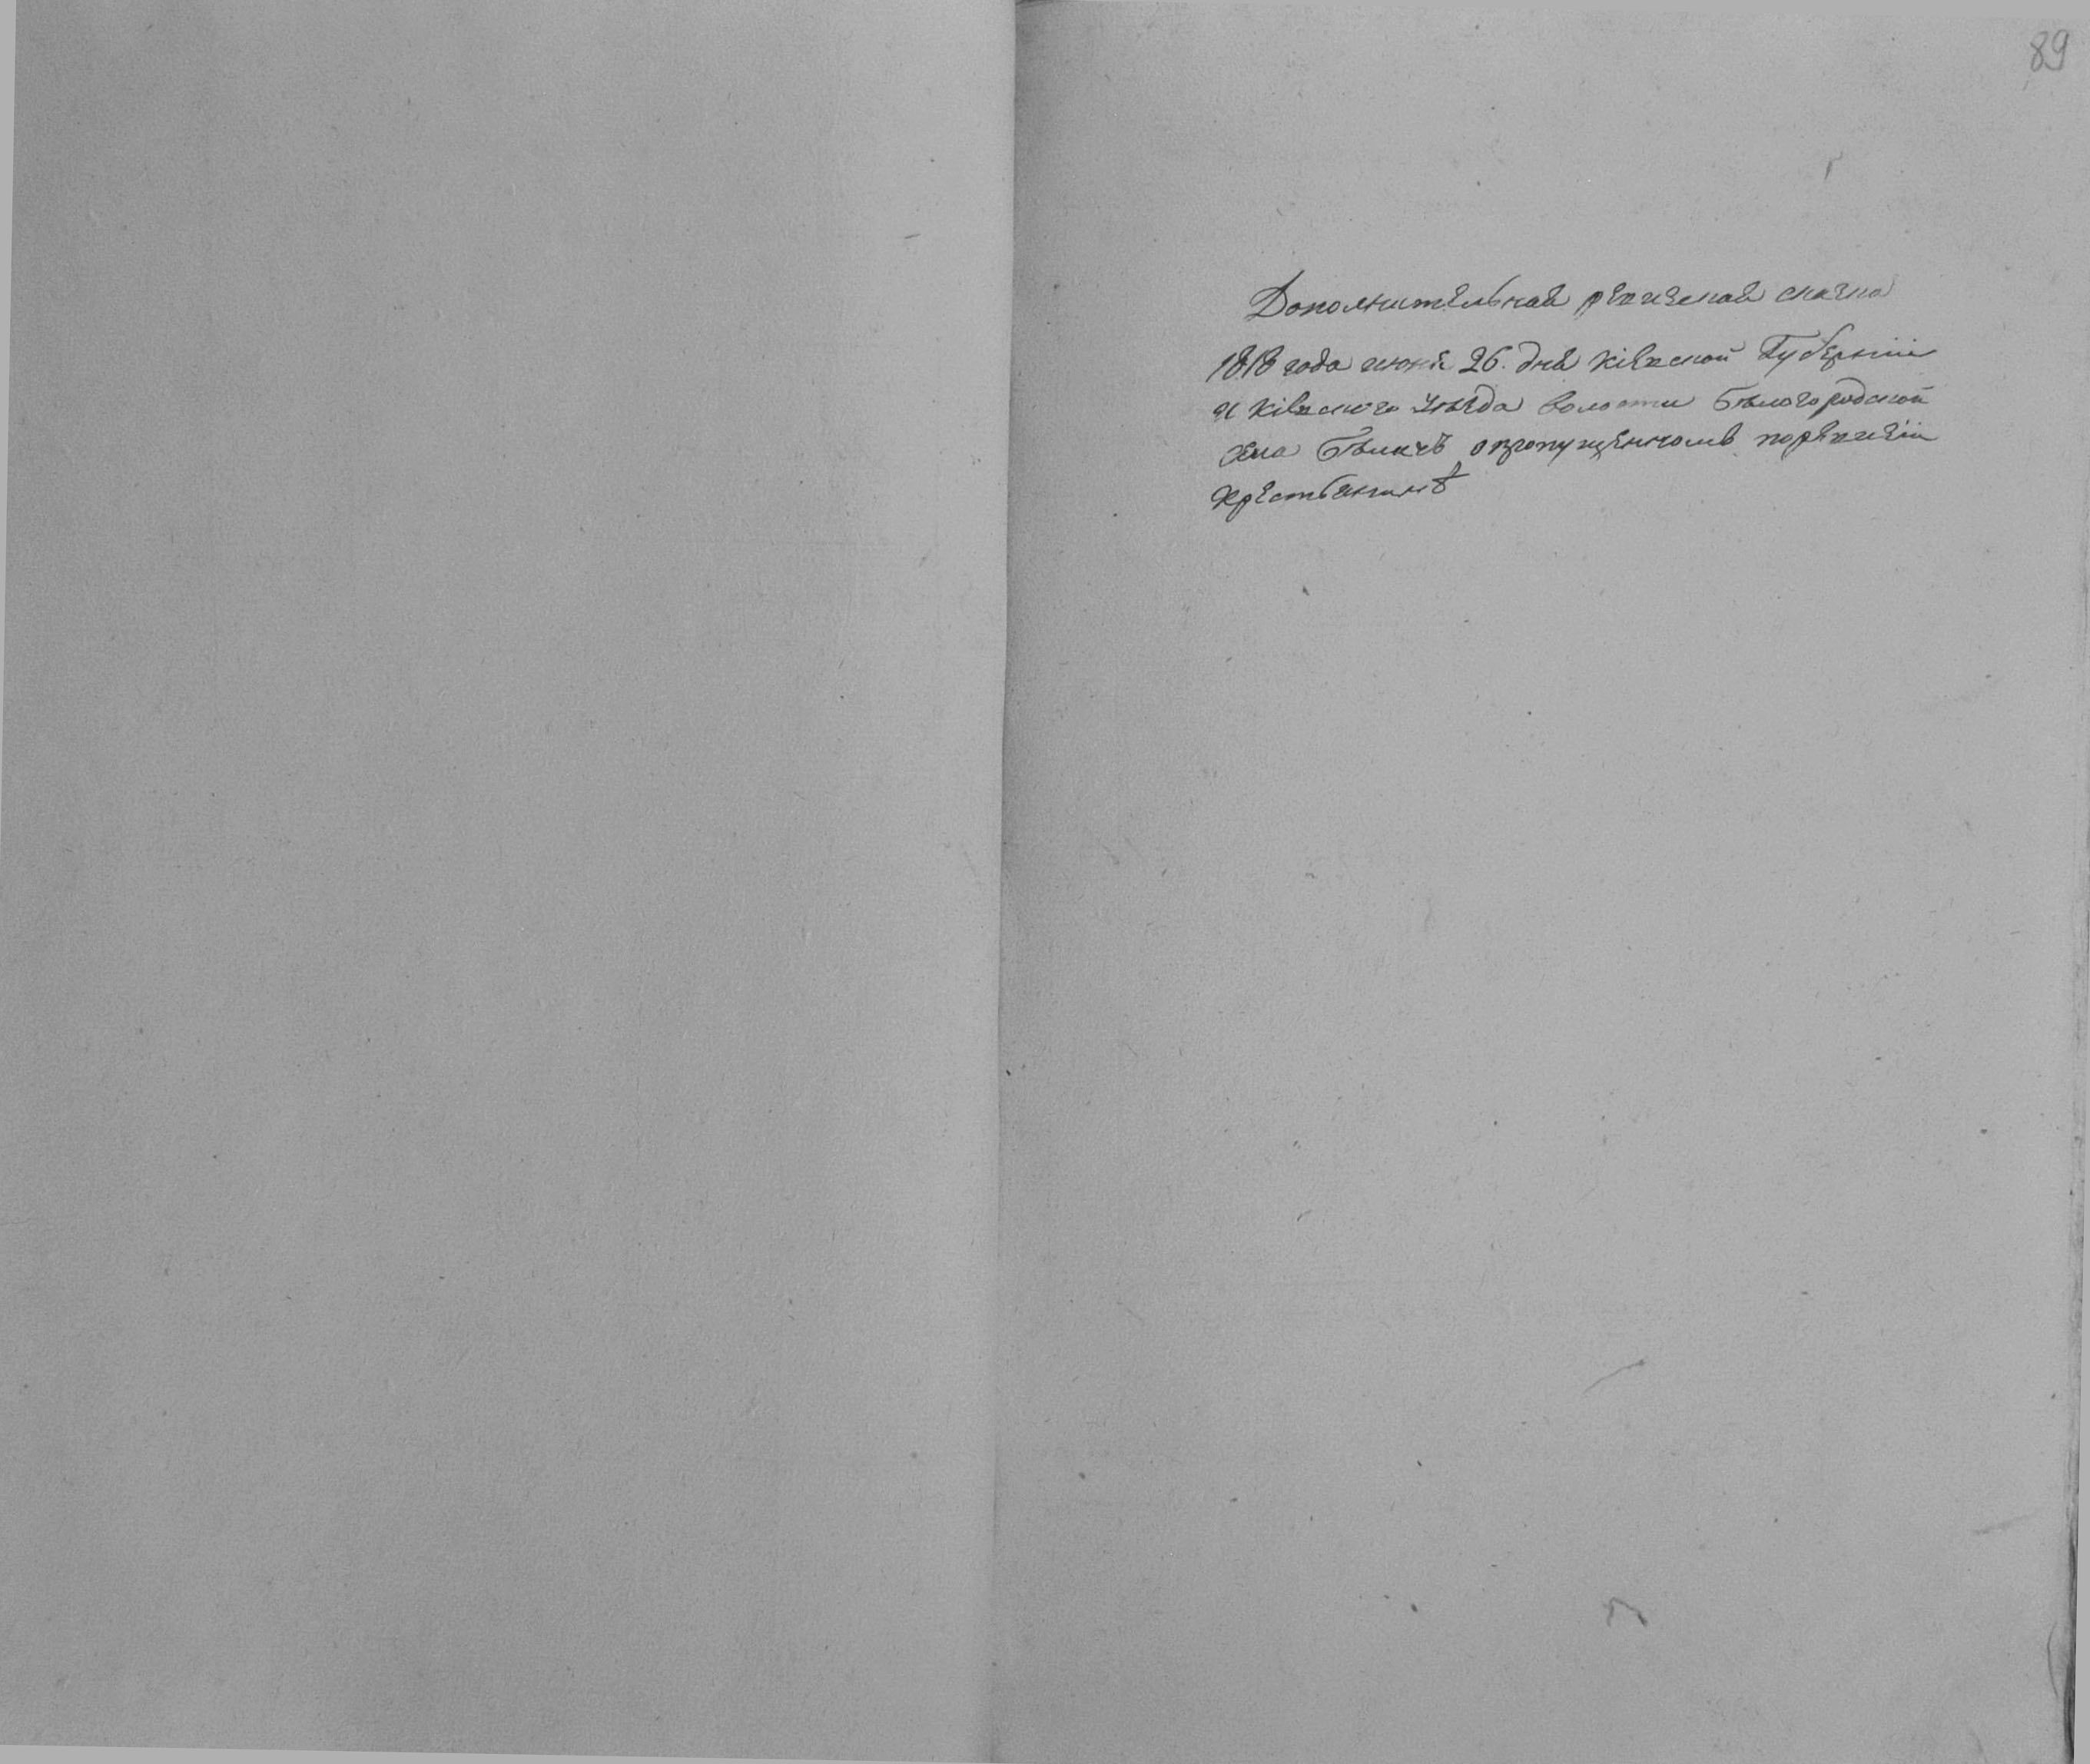 89
Дополнительная ревизская сказка
1818 года июня 26. дня Кіевской Губерніи
и Кіевского уѣзда волости Бѣлогородской
села Бѣличъ опропущенномъ поревизіи
крестьянинѣ